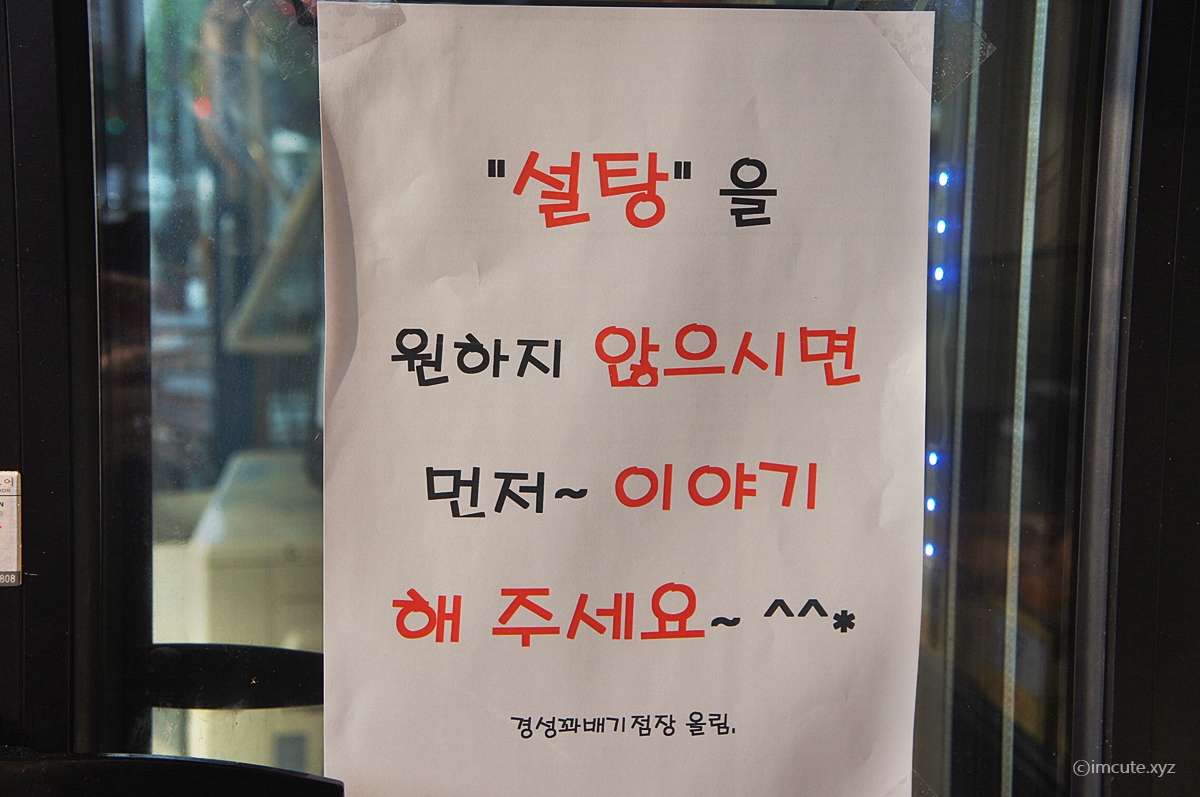 "설탕" 을
원하지 않으시면
먼저~ 이야기
해 주세요~ ^^*
경성꽈배기점장 올림.
808
©imcute.xyz